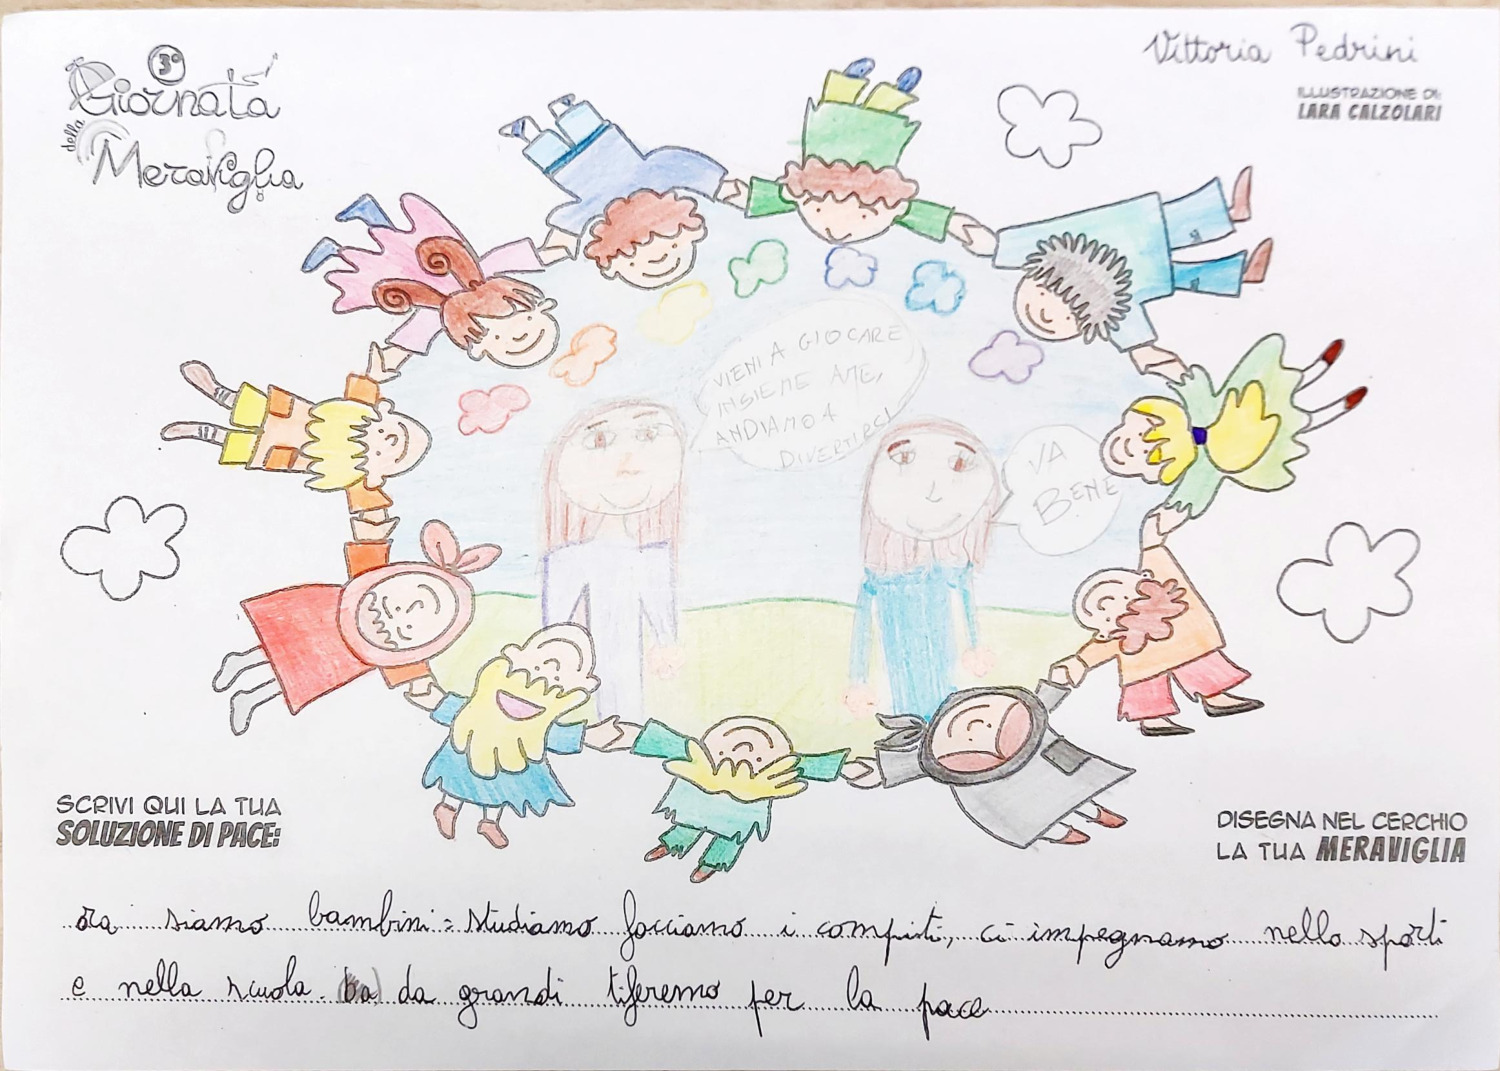 3ª
Giornata
della
Meraviglia
Vittoria Pedrini
ILLUSTRAZIONE DI:
LARA CALZOLARI
VIENI A GIOCARE
INSIEME A ME,
ANDIAMO A
DIVERTIRCI
VA
BENE
SCRIVI QUI LA TUA
SOLUZIONE DI PACE:
DISEGNA NEL CERCHIO
LA TUA MERAVIGLIA
ora siamo bambini: studiamo facciamo i compiti, ci impegnamo nello sport
e nella scuola. da grandi tiferemo per la pace